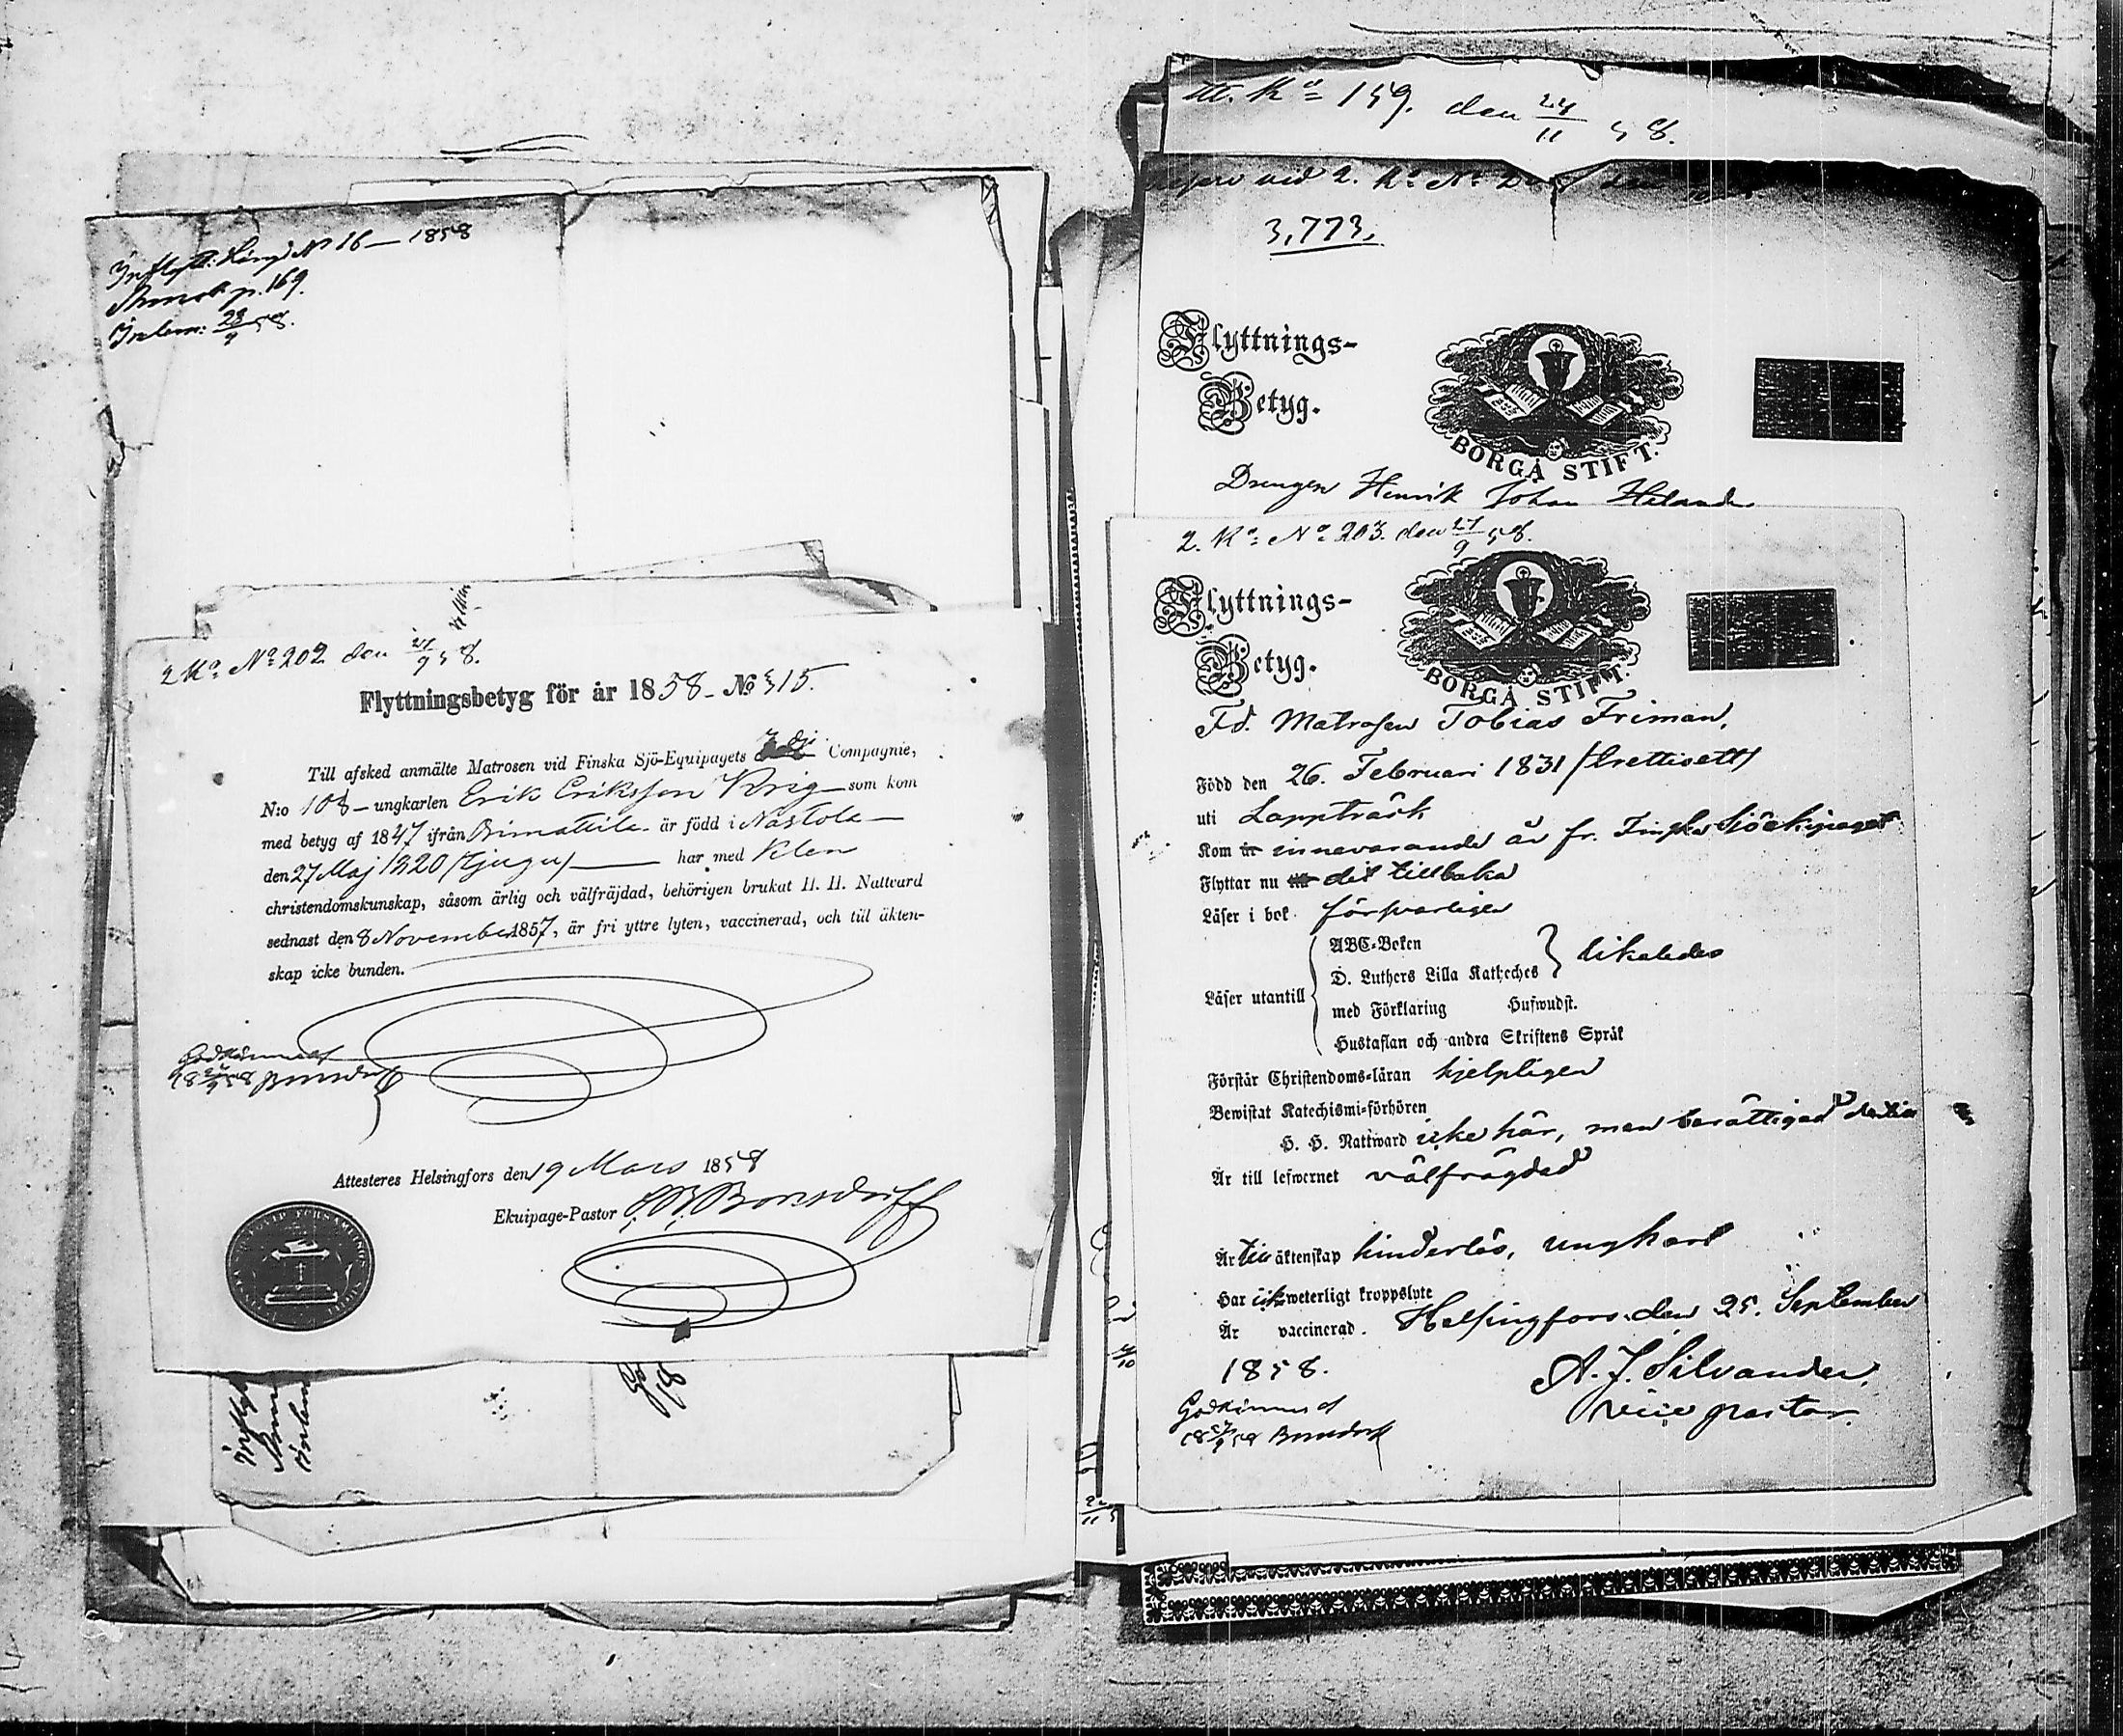 Inflytt: Längd No 16 — 1858
p. 169.
Inlem: 28/9 58.
2 Ka No 202 den 27/9 58.
Flyttningsbetyg för år 1858 - No 315.
Till afsked anmälte Matrosen vid Finska Sjö-Equipagets Compagnie,
N:o 108 - ungkarlen Erik Eriksson Krig - som kom
med betyg af 1847 ifrån Orimattila - är född i Nastola —
den 27 Maj 1820 (tjugu) — har med klen
christendomskunskap, såsom ärlig och välfräjdad, behörigen brukat H. H. Nattvard
sednast den 8 November 1857, är fri yttre lyten, vaccinerad, och till äkten-
skap icke bunden.
Godkännes
18 27/9 58 Bonsdorff
Attesteres Helsingfors den 19 Mars 1858
Ekuipage-Pastor Bonsdorff
Ka 159. den 24/11 58.
vid 2. Ka No
3,773.
Flyttnings-
Betyg.
BORGÅ STIFT.
Drengen Henrik Johan Helander
2. Ka No 203. den 27/9 58.
Flyttnings-
Betyg.
BORGÅ STIFT.
Fd. Matrosen Tobias Friman,
Född den 26. Februari 1831 (trettioett)
uti Lappträsk
Kom år innevarande år fr. Finska Sjöekipaget
Flyttar nu till dit tillbaka
Läser i bok försvarligen
ABC-Boken
D. Luthers Lilla Katheches } likaledes
Läser utantill
med Förklaring Hufwudst.
Hustaflan och andra Skriftens Språk
Förstår Christendoms-läran hjelpligen
Bewistat Katechismi-förhören
H. H. Nattward icke här, men berättigad dertill
Är till lefwernet välfrägdad
Är till äktenskap hinderlös, ungkarl
Har icke weterligt kroppslyte
Är vaccinerad. Helsingfors den 25. September
1858.
A. J. Silvander,
vice pastor.
Godkännes
18 27/9 58 Bonsdorff